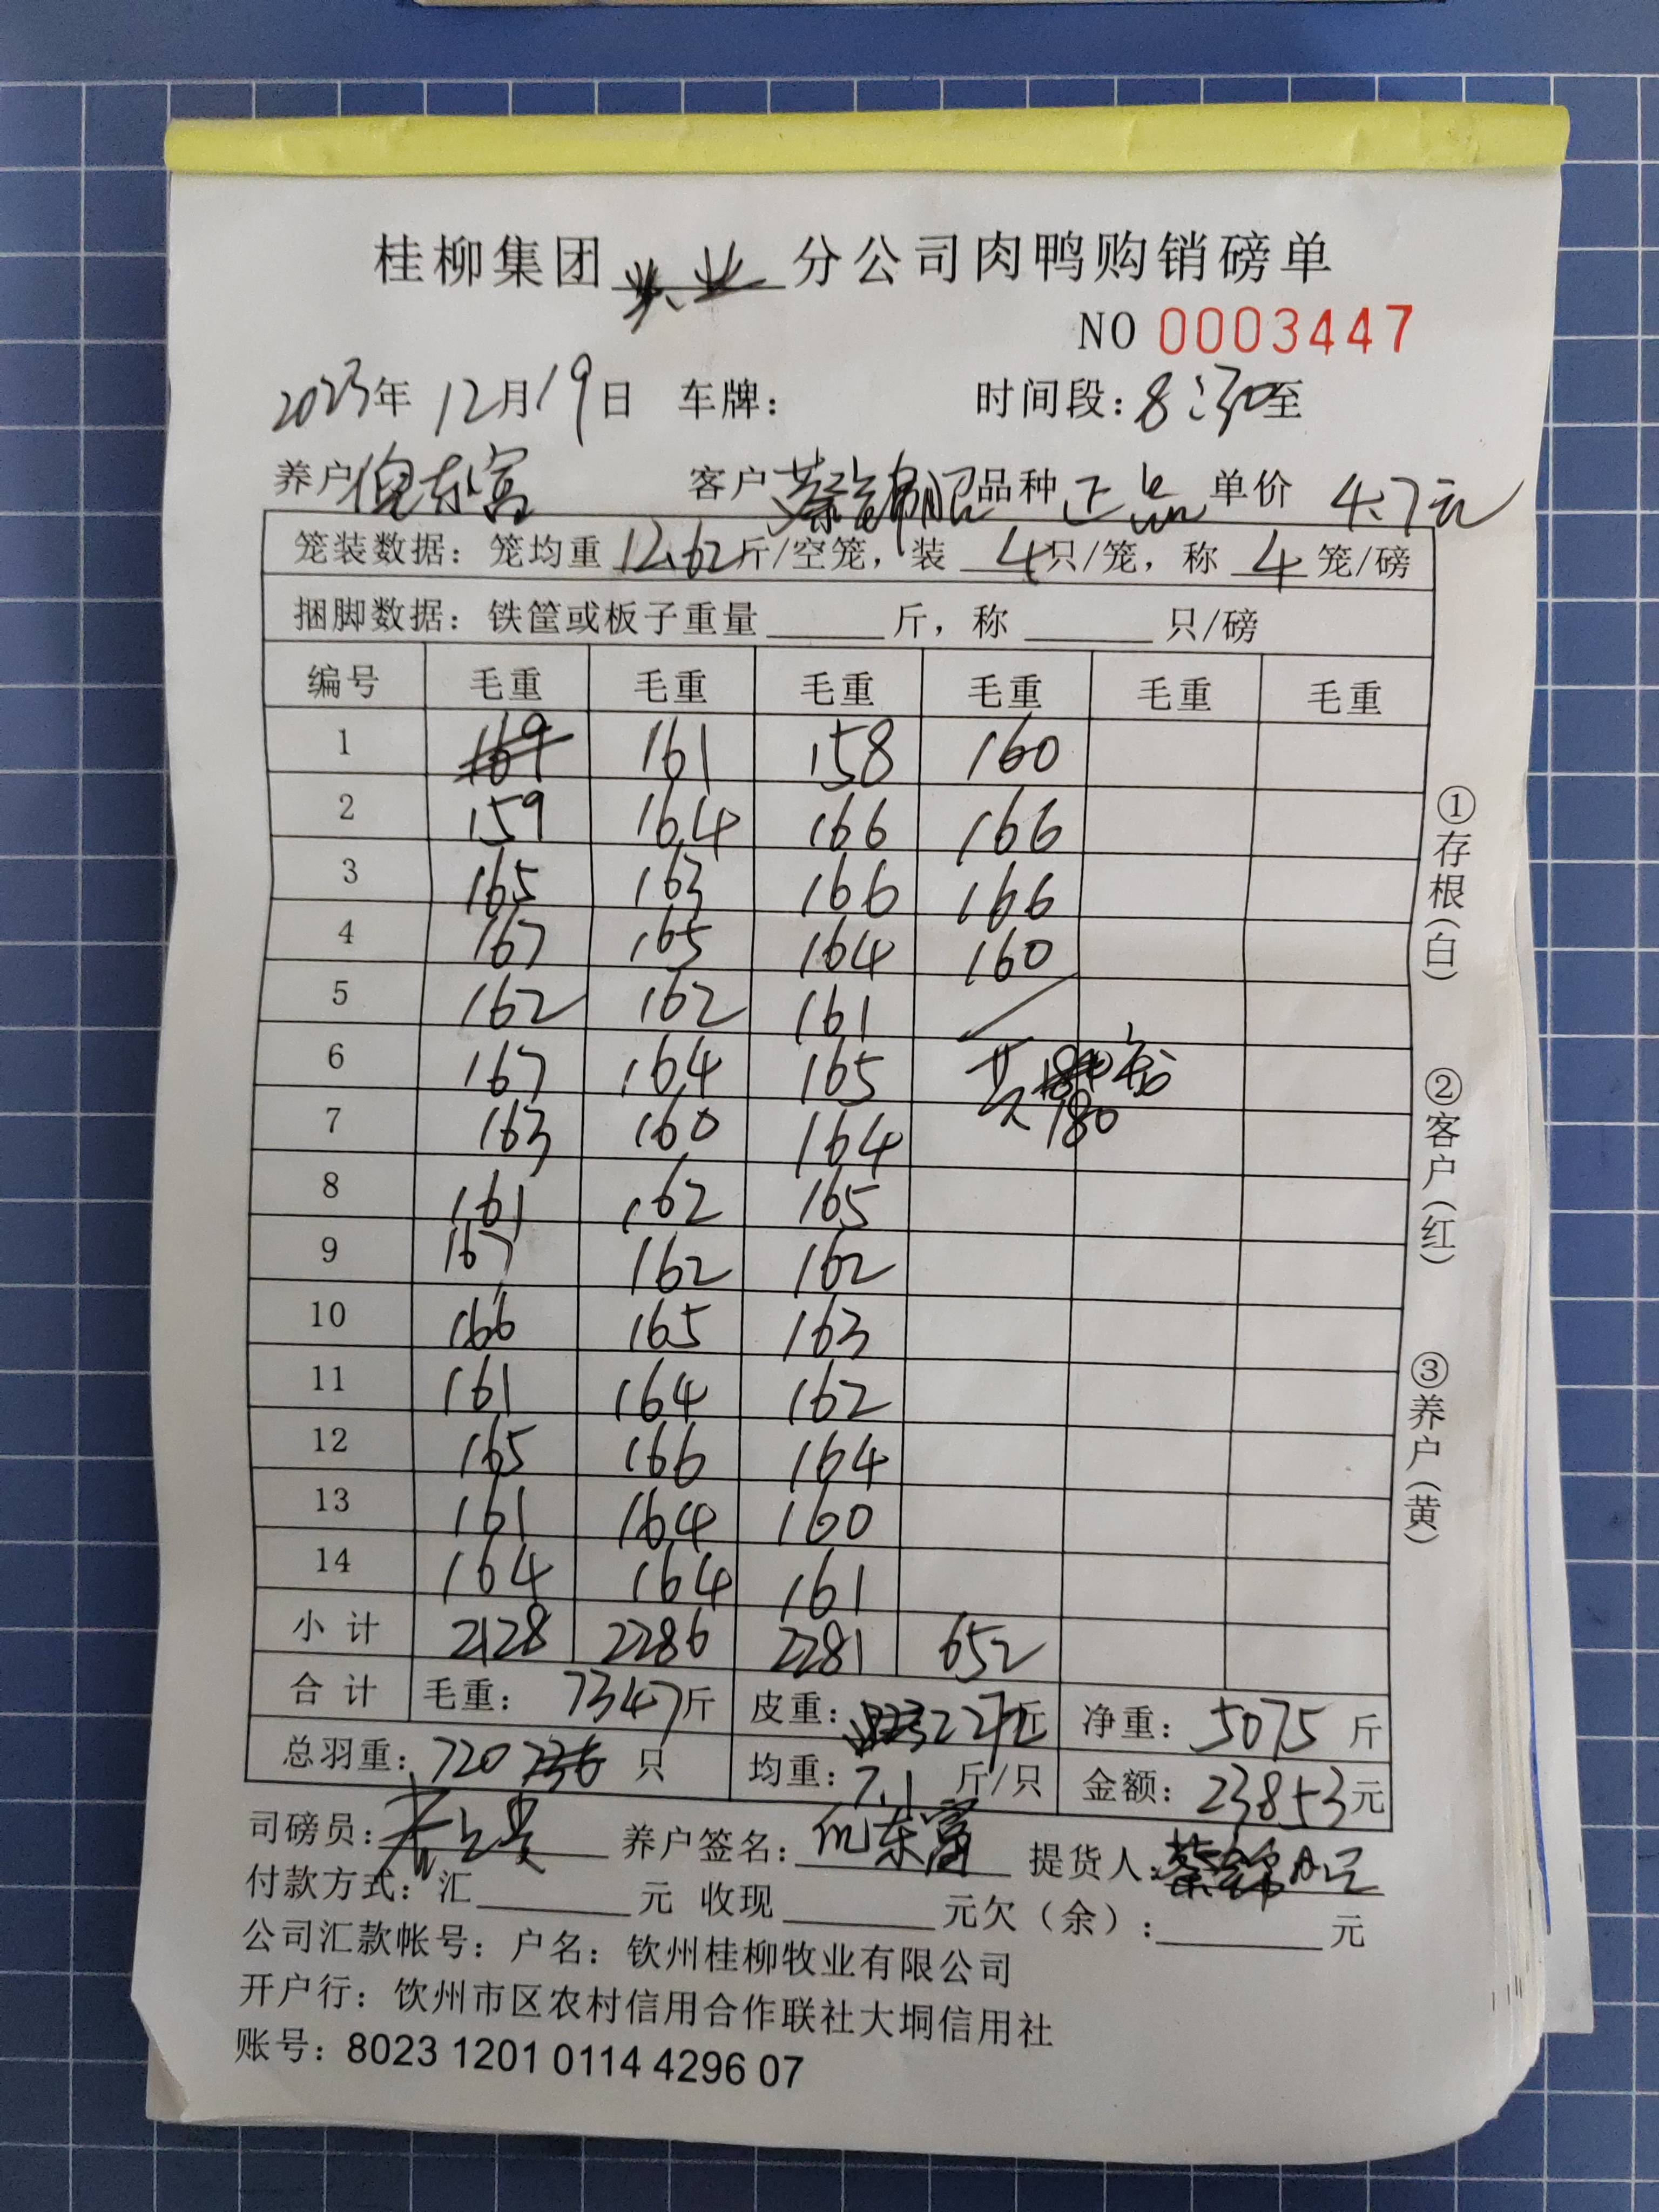 桂柳集团 兴业 分公司肉鸭购销磅单
NO 0003447
2023年 12月19日 车牌： 时间段：8:30至
养户 倪东富 客户 蔡锦昭 品种 正品 单价 4.7元
笼装数据：笼均重 12.62斤/空笼，装 4只/笼，称 4 笼/磅
捆脚数据：铁筐或板子重量______斤，称______只/磅
编号 毛重 毛重 毛重 毛重 毛重 毛重
1 169 161 158 160
2 159 164 166 166
3 165 163 166 166
4 167 165 164 160
5 162 162 161
6 167 164 165 共 笼
7 163 160 164 180
8 161 162 165
9 167 162 162
10 166 165 163
11 161 164 162
12 165 166 164
13 161 164 160
14 164 164 161
小计 2128 2286 2281 652
合计 毛重： 7347斤 皮重：2272斤 净重：5075 斤
总羽重：720 736 只 均重：7.1 斤/只 金额：23853元
司磅员： 养户签名：倪东富 提货人：蔡锦昭
付款方式：汇______元 收现______元欠（余）：______元
公司汇款帐号：户名：钦州桂柳牧业有限公司
开户行：钦州市区农村信用合作联社大垌信用社
账号：8023 1201 0114 4296 07
①存根（白）
②客户（红）
③养户（黄）